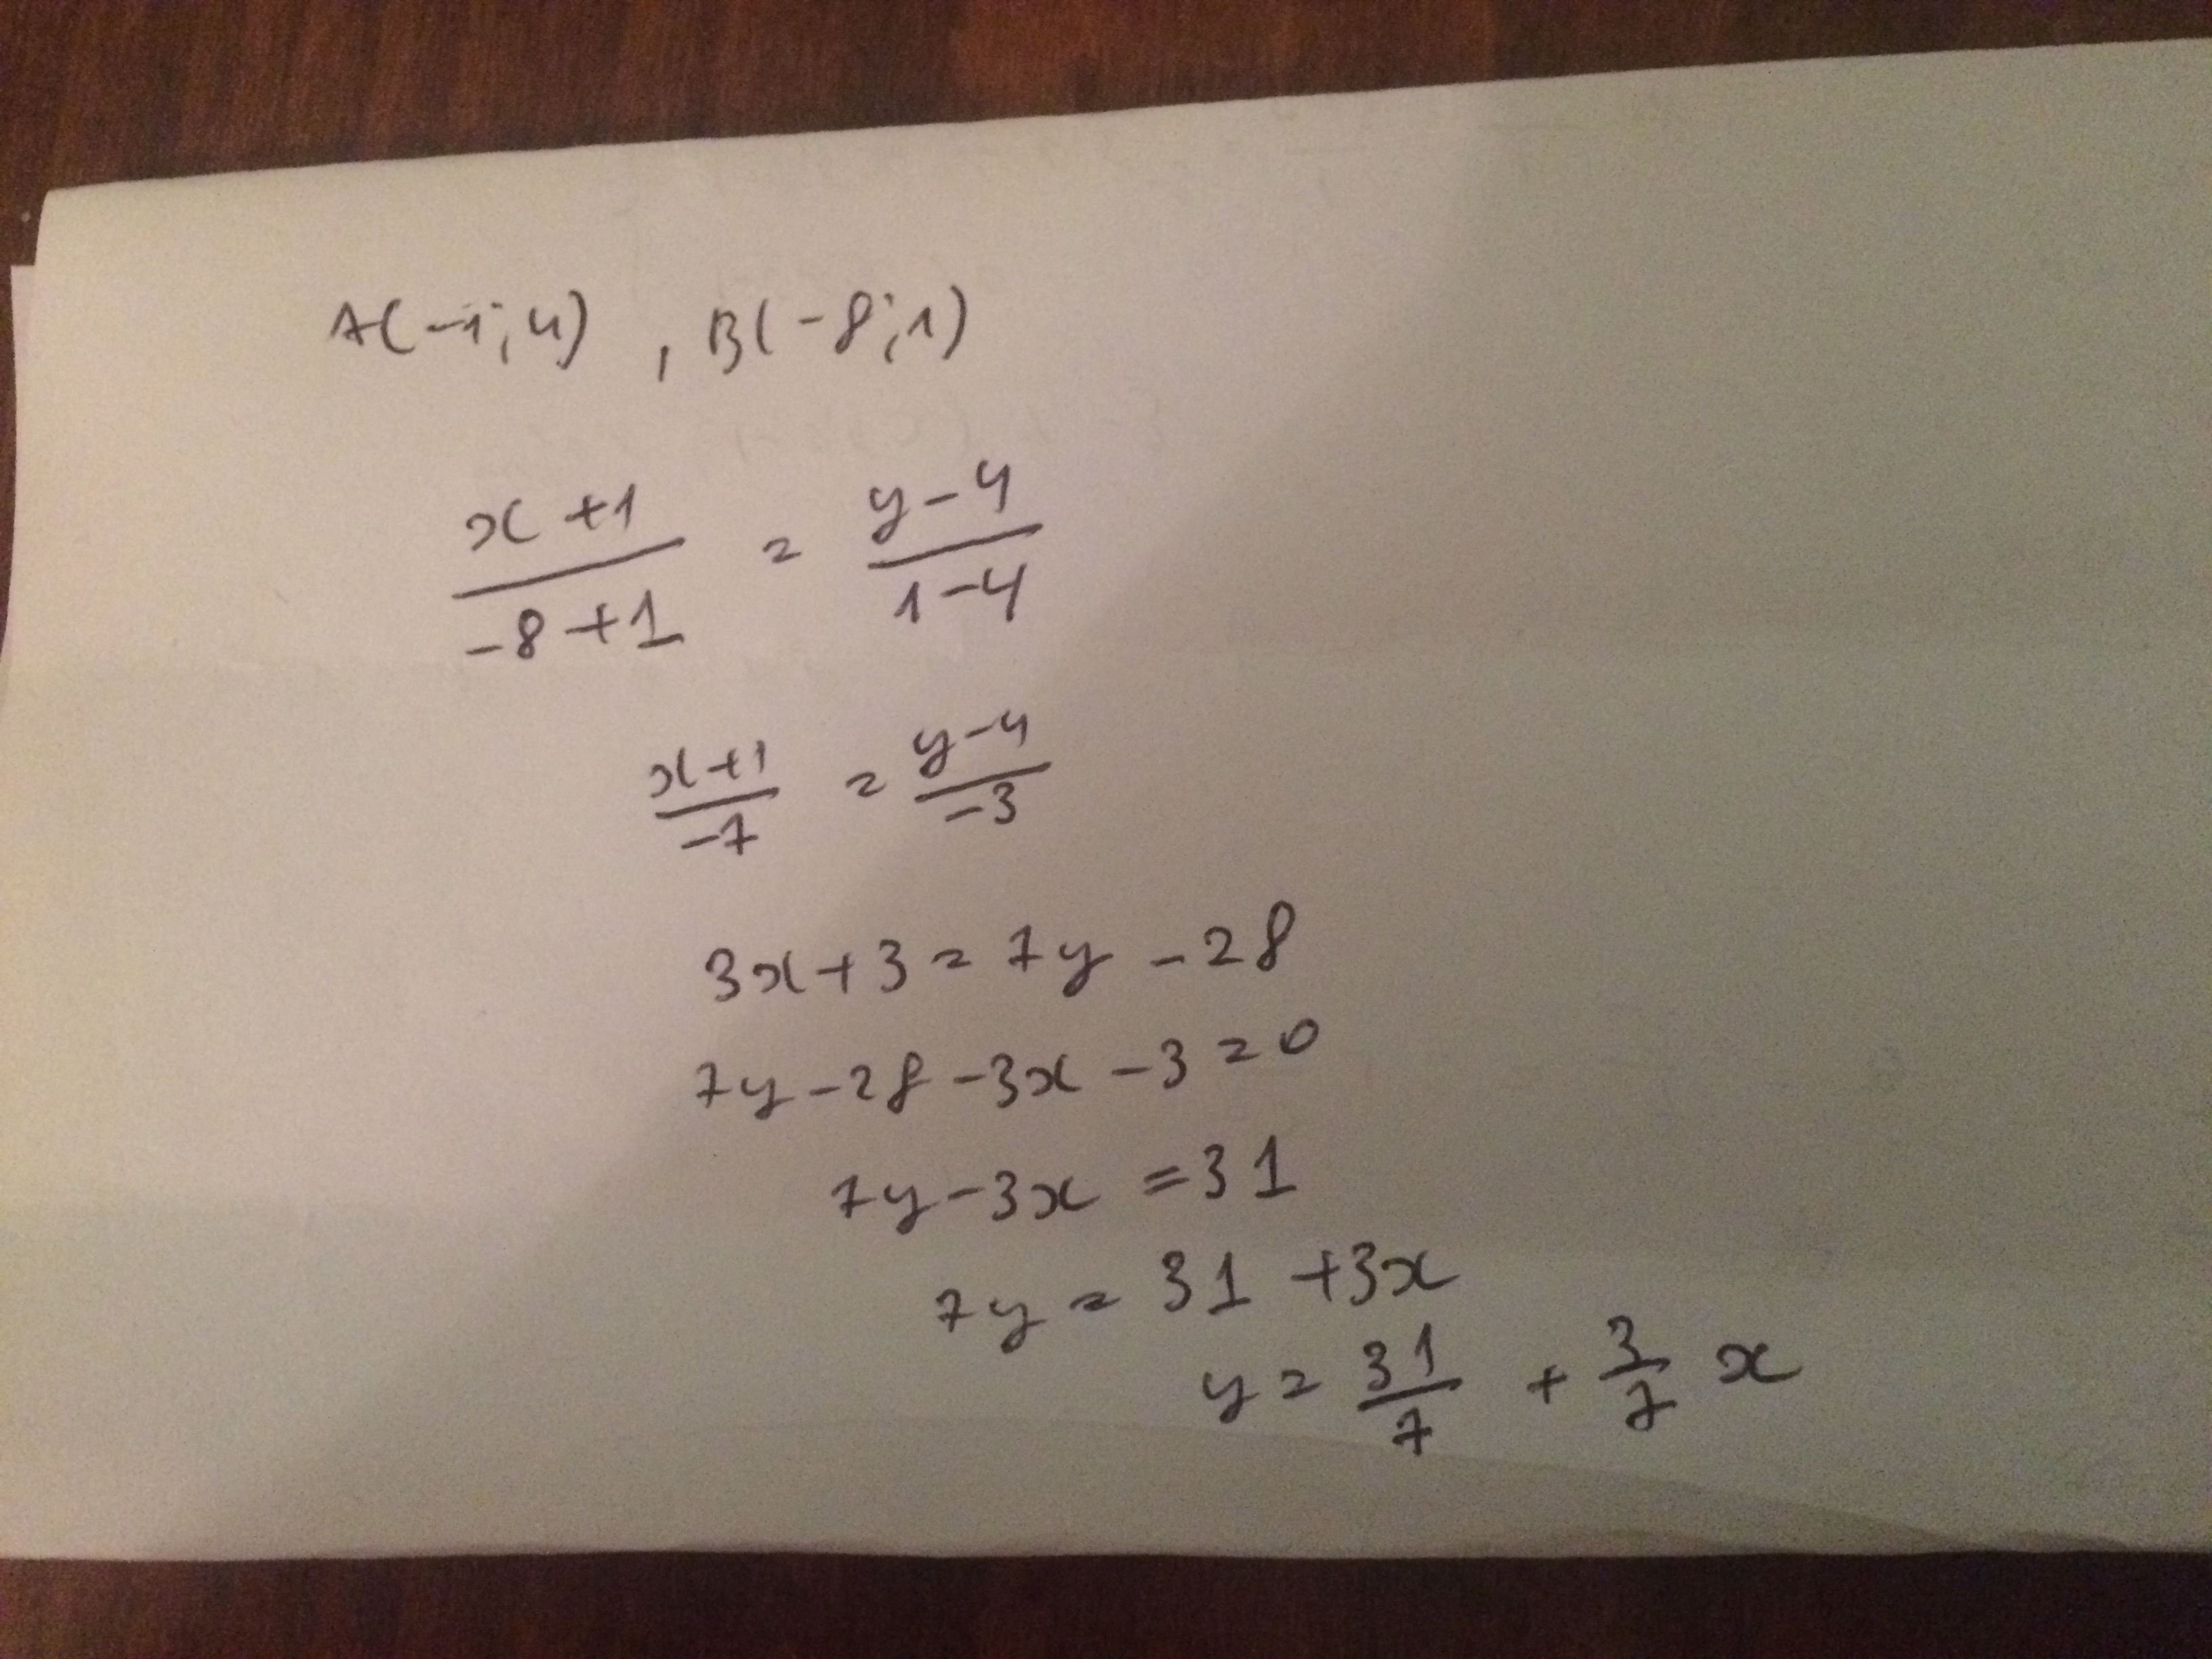 A(-1;4) , B(-8;1)
x+1/-8+1 = y-4/1-4
x+1/-7 = y-4/-3
3x+3=7y-28
7y-28-3x-3=0
7y-3x=31
7y=31+3x
y=31/7+3/7x